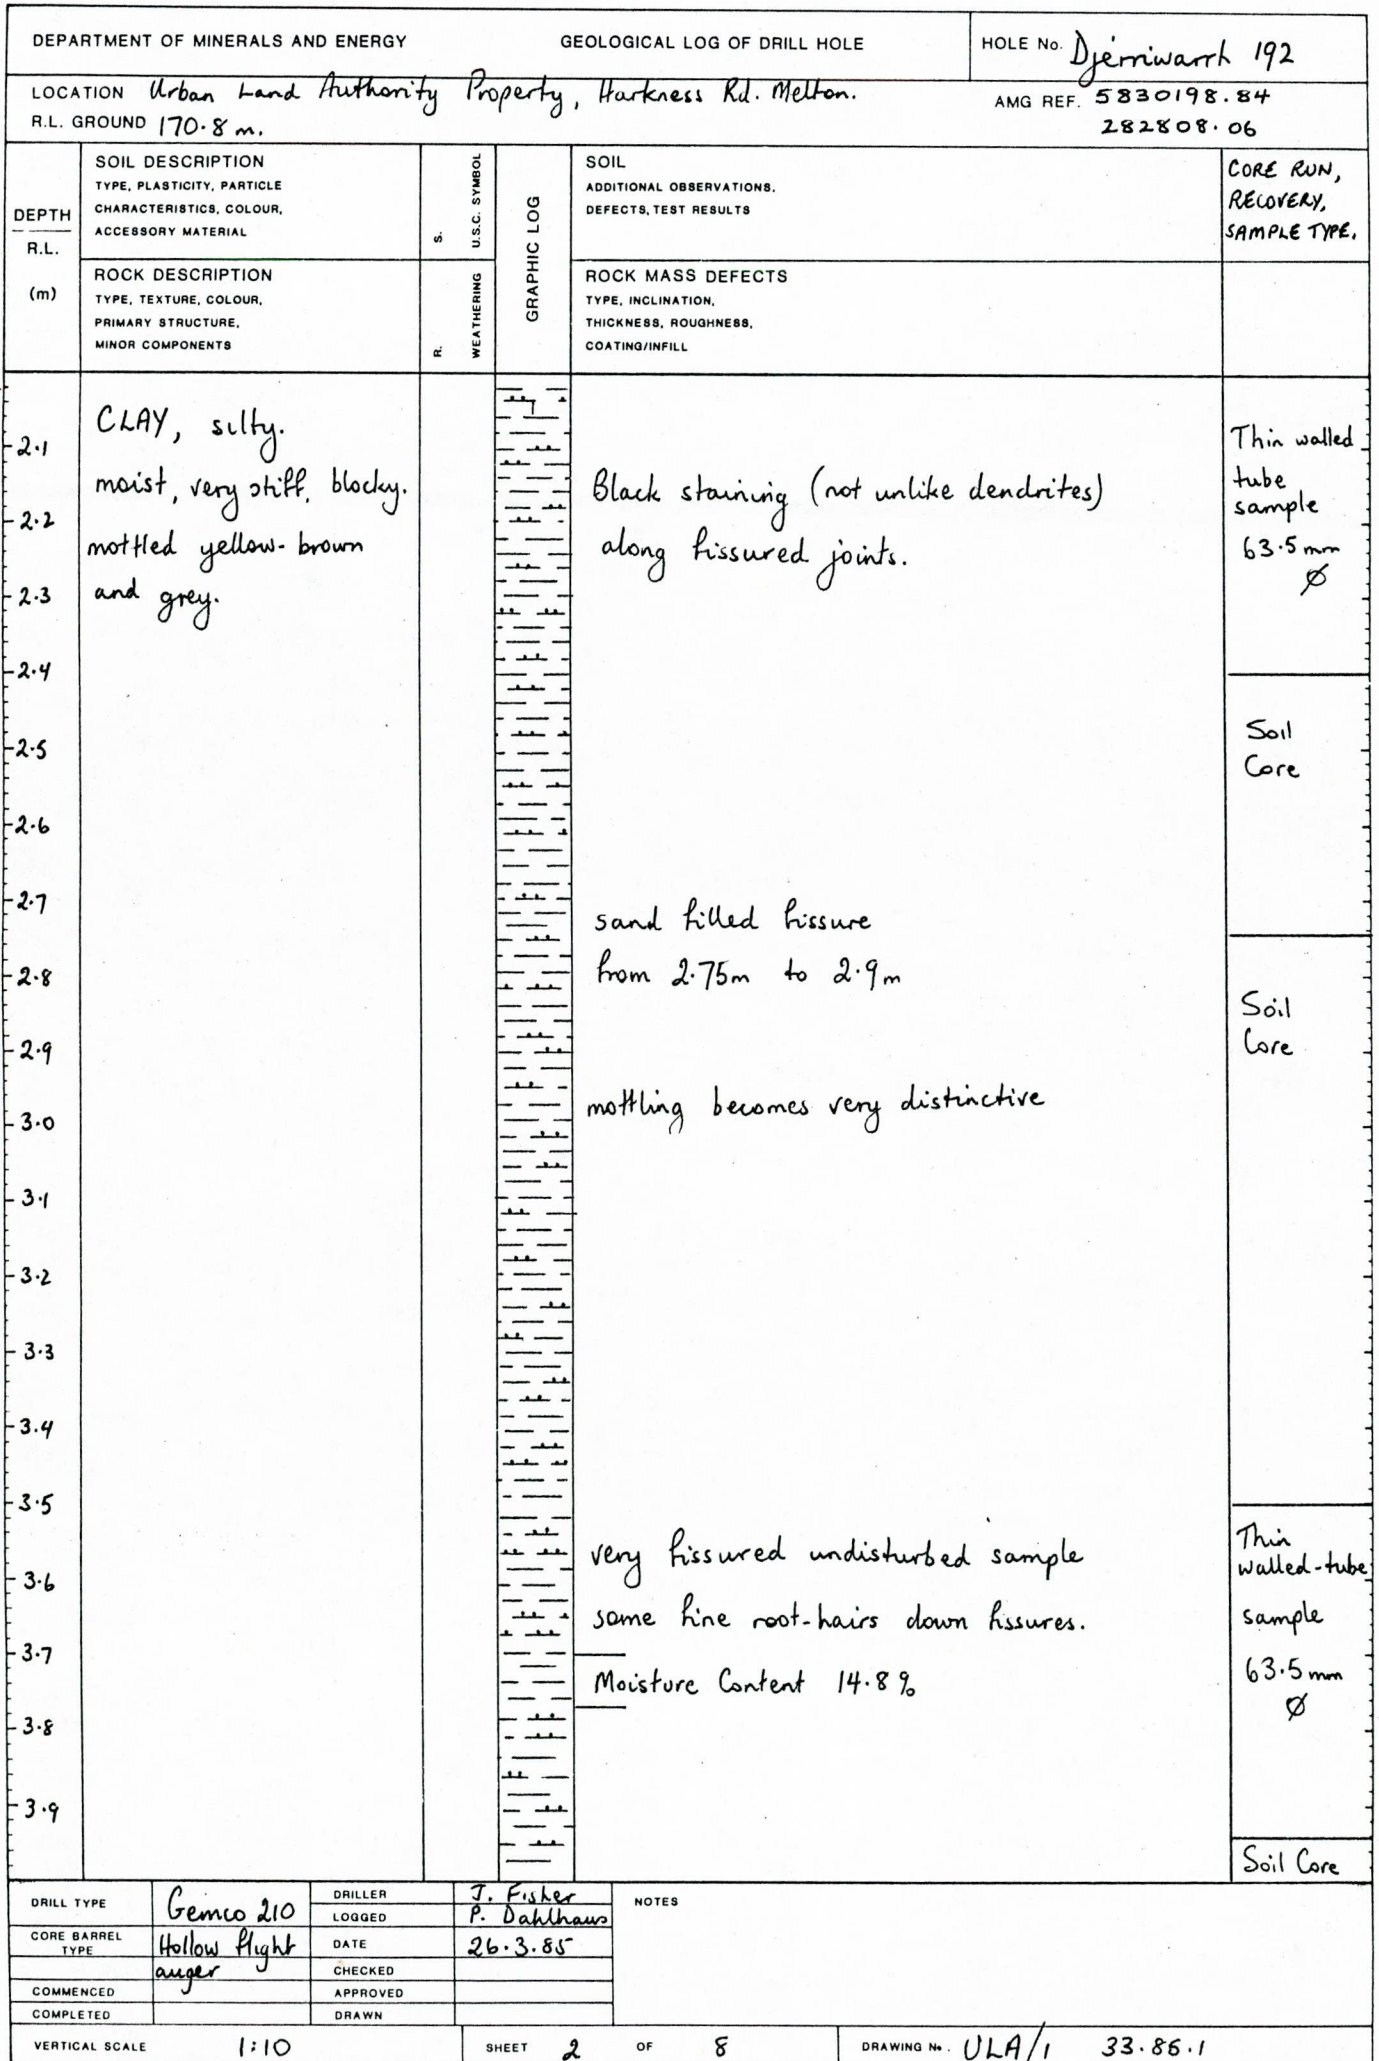 DEPARTMENT OF MINERALS AND ENERGY
GEOLOGICAL LOG OF DRILL HOLE
HOLE No. Djerriwarrh 192
LOCATION Urban Land Authority Property, Harkness Rd. Melton.
AMG REF. 5830198.84
R.L. GROUND 170.8 m.
282808.06
DEPTH
R.L.
(m)
SOIL DESCRIPTION
TYPE, PLASTICITY, PARTICLE
CHARACTERISTICS, COLOUR,
ACCESSORY MATERIAL
ROCK DESCRIPTION
TYPE, TEXTURE, COLOUR,
PRIMARY STRUCTURE,
MINOR COMPONENTS
S. U.S.C. SYMBOL
R. WEATHERING
GRAPHIC LOG
SOIL
ADDITIONAL OBSERVATIONS,
DEFECTS, TEST RESULTS
ROCK MASS DEFECTS
TYPE, INCLINATION,
THICKNESS, ROUGHNESS,
COATING/INFILL
CORE RUN,
RECOVERY,
SAMPLE TYPE.
2.1
2.2
2.3
2.4
2.5
2.6
2.7
2.8
2.9
3.0
3.1
3.2
3.3
3.4
3.5
3.6
3.7
3.8
3.9
CLAY, silty.
moist, very stiff, blocky.
mottled yellow-brown
and grey.
Black staining (not unlike dendrites)
along fissured joints.
sand filled fissure
from 2.75m to 2.9m
mottling becomes very distinctive
very fissured undisturbed sample
some fine root-hairs down fissures.
Moisture Content 14.8%
Thin walled
tube
sample
63.5 mm
Ø
Soil
Core
Soil
Core
Thin
walled-tube
sample
63.5 mm
Ø
Soil Core
DRILL TYPE Gemco 210
CORE BARREL
TYPE
Hollow flight
auger
COMMENCED
COMPLETED
DRILLER J. Fisher
LOGGED P. Dahlhaus
DATE 26.3.85
CHECKED
APPROVED
DRAWN
NOTES
VERTICAL SCALE 1:10
SHEET 2 OF 8
DRAWING No. ULA/1 33.86.1